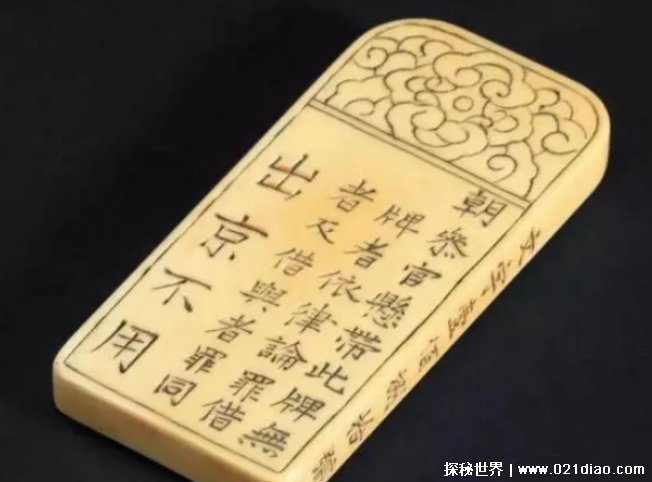 朝叅官懸帶此牌無
牌者依律論罪借
者及借與者罪同
出京不用
探秘世界 | www.021diao.com